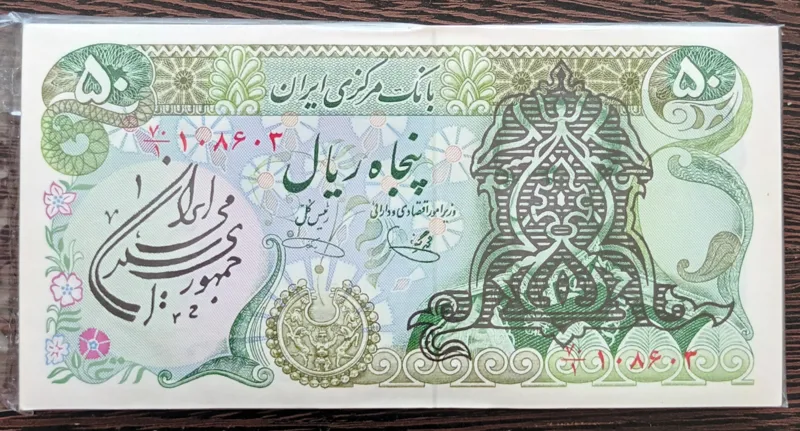 ۵۰
بانک مرکزی ایران
۵۰
۷۰/۱ ۱۰۸۶۰۳
پنجاه ریال
رئیس کل
وزیر امور اقتصادی و دارائی
جمهوری اسلامی ایران
۷۰/۱ ۱۰۸۶۰۳